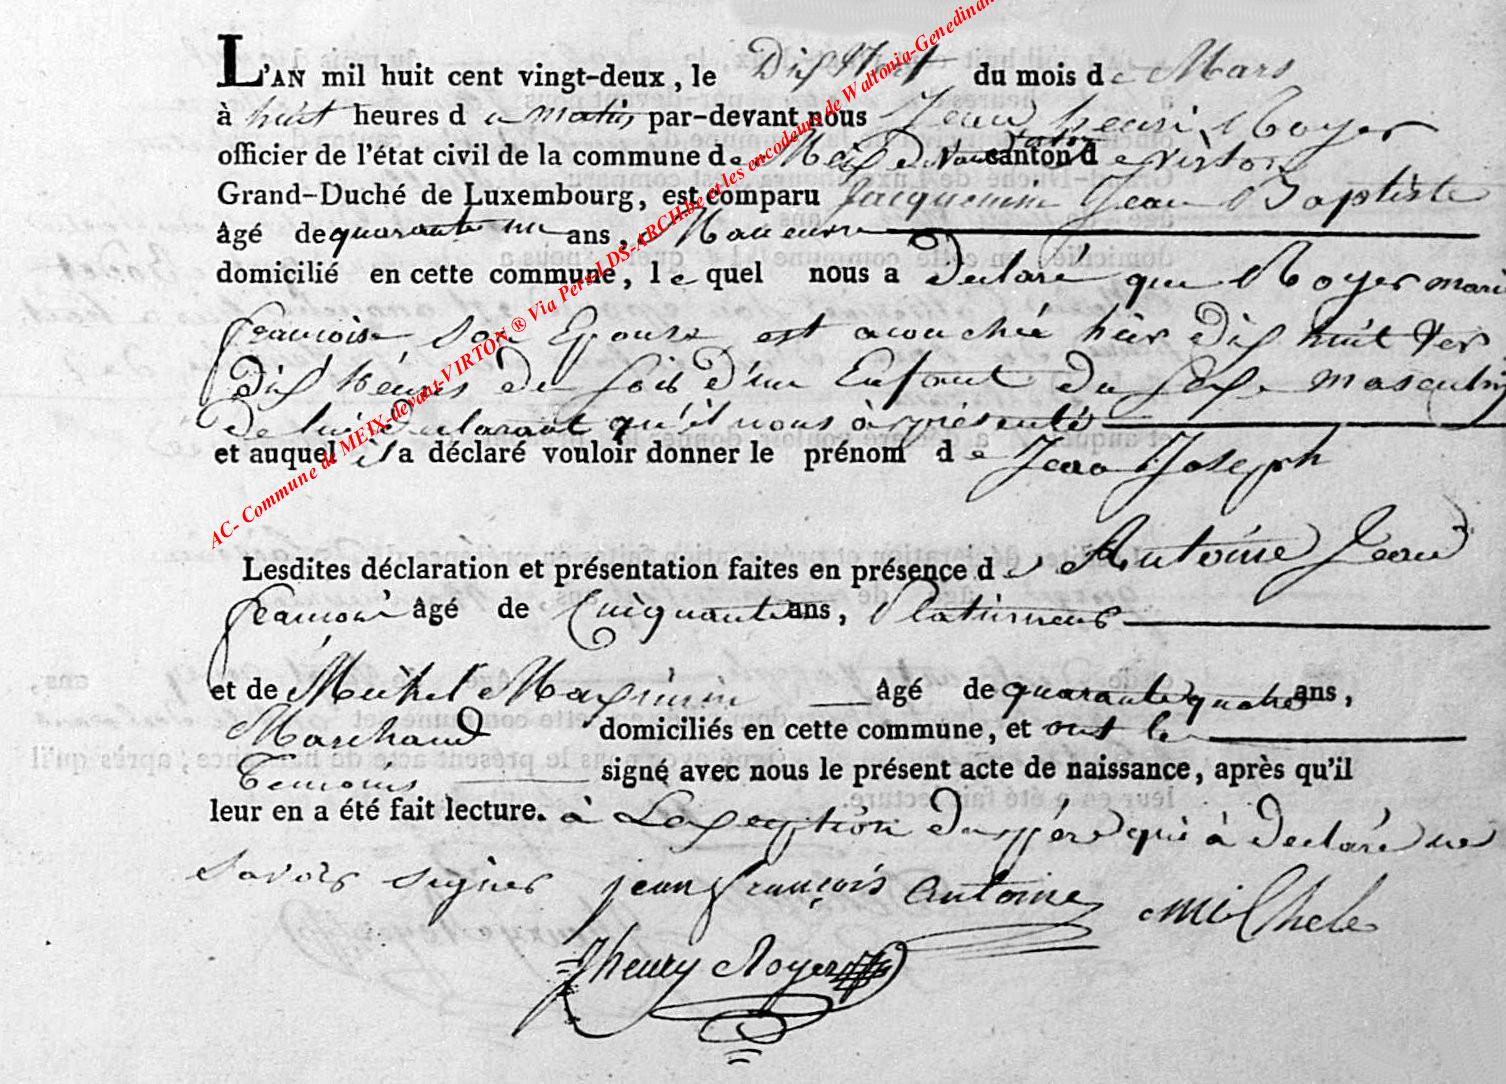 L'AN mil huit cent vingt-deux, le Dix Neuf du mois de Mars
à huit heures du matin par-devant nous Jean henri Royer
officier de l'état civil de la commune de Meix devant Virton canton de virton
Grand-Duché de Luxembourg, est comparu Jacquemin Jean Baptiste
âgé de quarante un ans,
domicilié en cette commune, le quel nous a declaré que Royer marie
francoise son Epouse est acouchée hier dix huit ver
dix heures du soir d'un Enfant du sexe masculin
de lui declarant qu'il nous à présenté
et auquel il a déclaré vouloir donner le prénom de Jean Joseph
Lesdites déclaration et présentation faites en présence de Antoine Jean
francois âgé de Cinquante ans, Platineur
et de Michel Maximin âgé de quarante quatre ans,
Marchand domiciliés en cette commune, et ont le
Temoins signé avec nous le présent acte de naissance, après qu'il
leur en a été fait lecture. à Lexseption du père qui à declaré ne
savoir signer jean françois antoine michele
Jhenry Royer
AC- Commune de MEIX-devant-VIRTON ® Via Pers-LDS-ARCH.be et les encodeurs de Waltonia-Genedinan